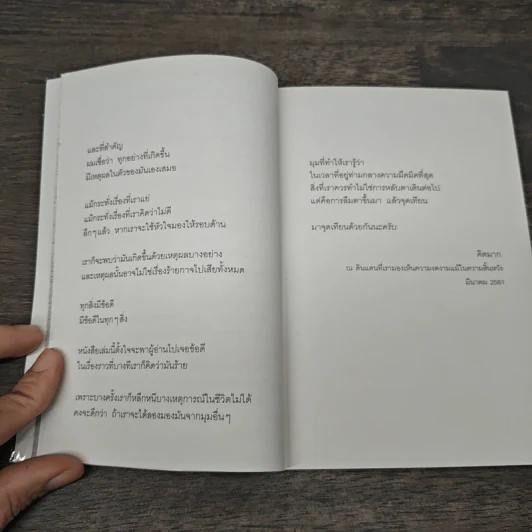 และที่สำคัญ
ผมเชื่อว่า ทุกอย่างที่เกิดขึ้น
มีเหตุผลในตัวของมันเองเสมอ
แม้กระทั่งเรื่องที่เราแย่
แม้กระทั่งเรื่องที่เราคิดว่าไม่ดี
ลึกๆแล้ว หากเราจะใช้หัวใจมองให้รอบด้าน
เราก็จะพบว่ามันเกิดขึ้นด้วยเหตุผลบางอย่าง
และเหตุผลนั้นอาจไม่ใช่เรื่องร้ายกาจไปเสียทั้งหมด
ทุกสิ่งมีข้อดี
มีข้อดีในทุกๆสิ่ง
หนังสือเล่มนี้ตั้งใจจะพาผู้อ่านไปเจอข้อดี
ในเรื่องราวที่บางทีเราก็คิดว่ามันร้าย
เพราะบางครั้งเราก็หลีกหนีบางเหตุการณ์ในชีวิตไม่ได้
คงจะดีกว่า ถ้าเราจะได้ลองมองมันจากมุมอื่นๆ
มุมที่ทำให้เรารู้ว่า
ในเวลาที่อยู่ท่ามกลางความมืดมิดที่สุด
สิ่งที่เราควรทำไม่ใช่การหลับตาเดินต่อไป
แต่คือการลืมตาขึ้นมา แล้วจุดเทียน
มาจุดเทียนด้วยกันนะครับ
คิดมาก
ณ ดินแดนที่เรามองเห็นความงดงามแม้ในความสิ้นหวัง
มีนาคม 2561